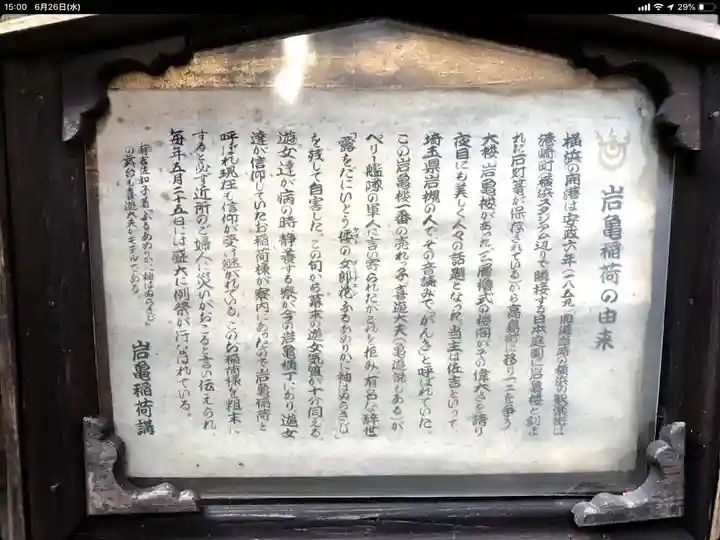 15:00 6月26日(水)
29%
岩亀稲荷の由来
横浜の開港は安政六年(一八五九)開港当時の横浜の歓楽街は
港崎町(横浜スタジアム辺りで隣接する日本庭園に岩亀楼と刻ま
れた石灯篭が保存されている)から高島町に移り一、二を争う
大楼岩亀楼があった。二層楼式の楼閣がその偉大さを誇り
夜目にも美しく人々の話題となった。当主は佐吉といって、
埼玉県岩槻の人で、その音読みで「がんき」と呼ばれていた。
この岩亀楼一番の売れっ子喜遊太夫(亀遊説もある)が
ペリー艦隊の軍人に言い寄られたがこれを拒み、有名な辞世
「露をだにいとう倭の女郎花ふるあめりかに袖はぬらさじ」
を残して自害した。この句から幕末の遊女気質が十分伺える
遊女達が病の時、静養する寮が今の岩亀横丁にあり、遊女
達が信仰していたお稲荷様が寮内にあったので岩亀稲荷と
呼ばれ現在も信仰が受け継がれている。このお稲荷様を粗末に
すると必ず近所のご婦人に災いがおこると言い伝えられ、
毎年五月二十五日には盛大に例祭が行なわれている。
有吉佐和子著「ふるあめりかに袖はぬらさじ」
の舞台も喜遊太夫がモデルである。
岩亀稲荷講